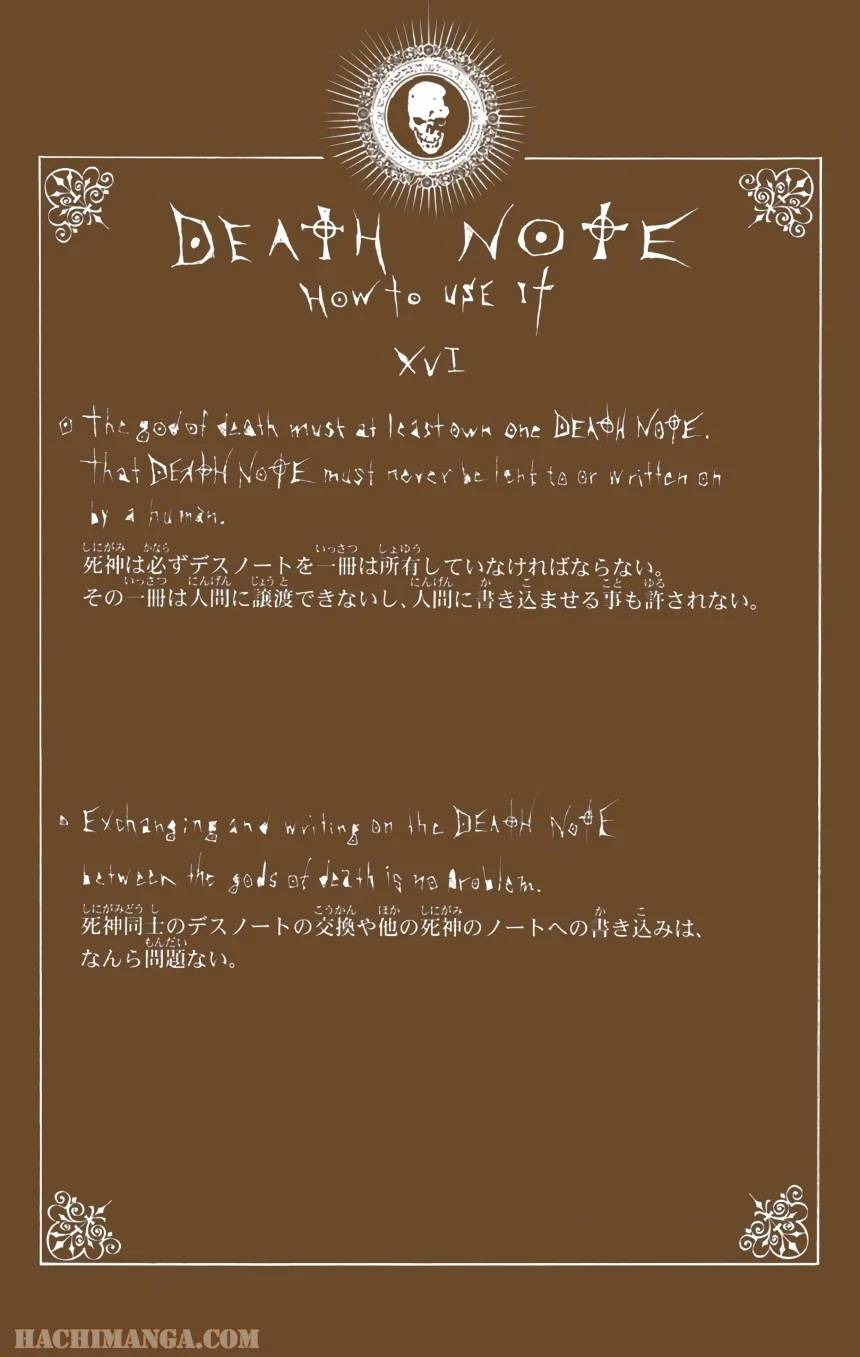 DEATH NOTE
HOW to USE It
XVI
The god of death must at least own one DEATH NOTE.
That DEATH NOTE must never be lent to or written on
by a human.
死神は必ずデスノートを一冊は所有していなければならない。
その一冊は人間に譲渡できないし、人間に書き込ませる事も許されない。
Exchanging and writing on the DEATH NOTE
between the gods of death is no problem.
死神同士のデスノートの交換や他の死神のノートへの書き込みは、
なんら問題ない。
HACHIMANGA.COM